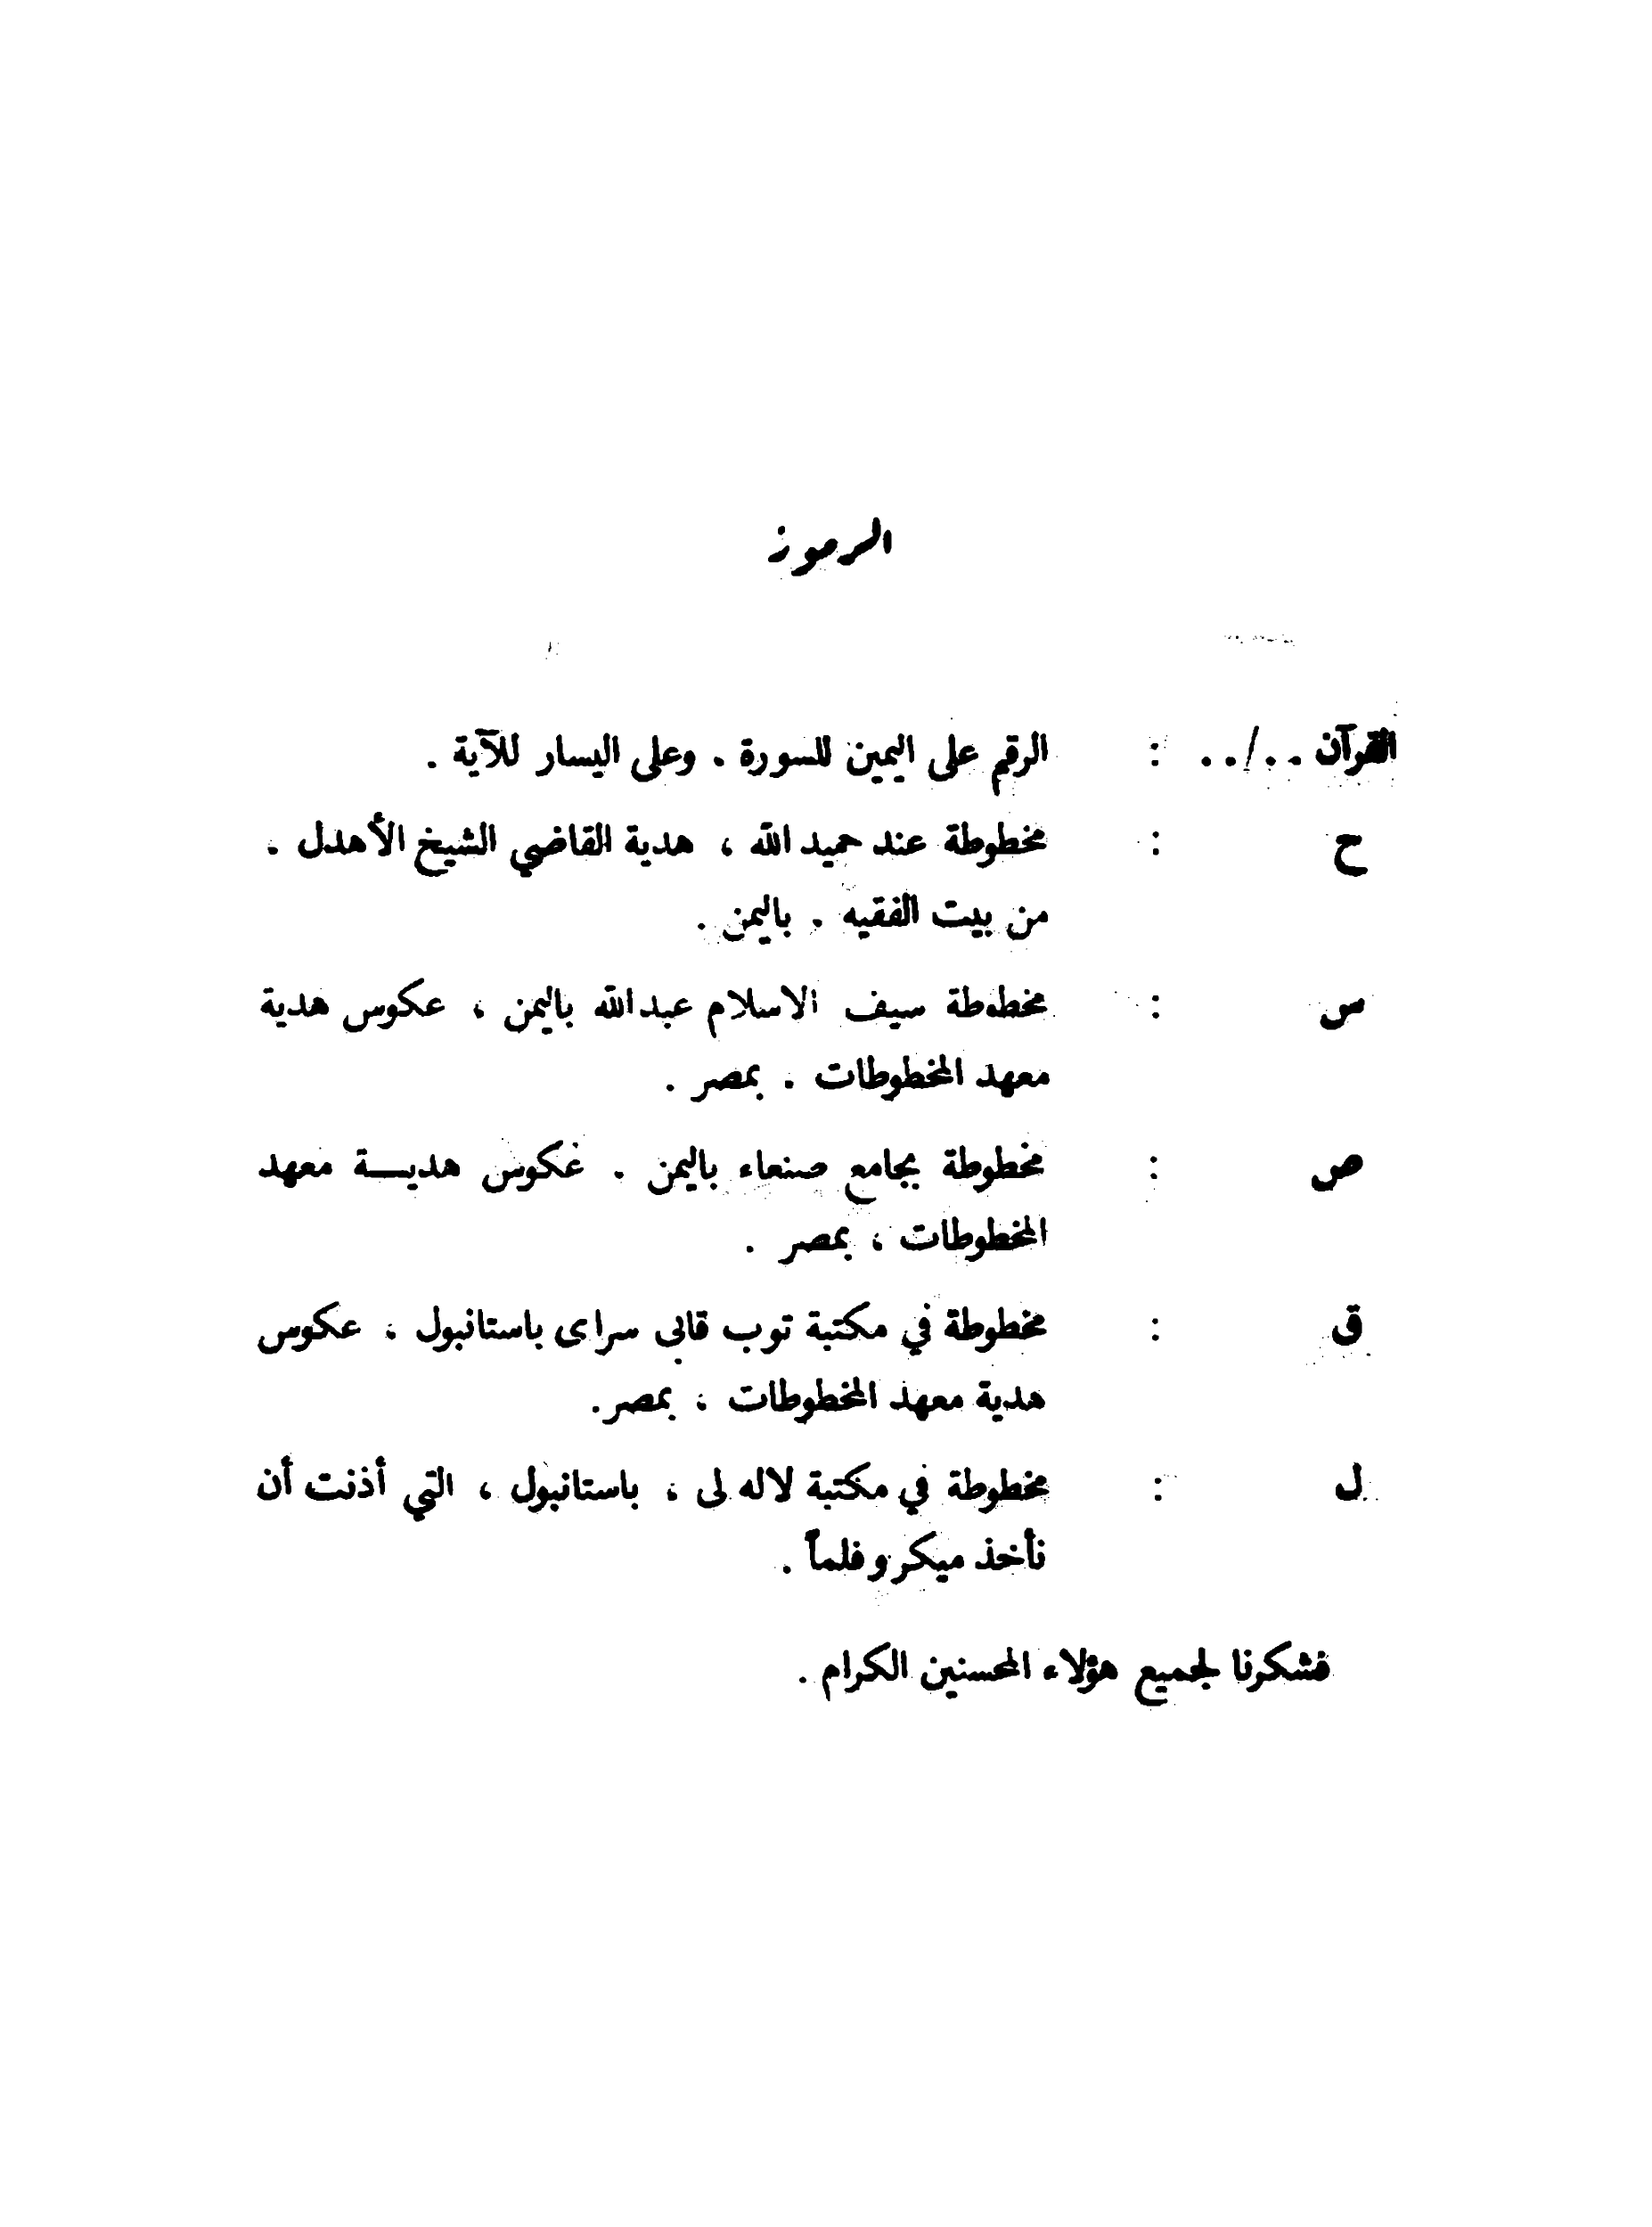 الرموز
القرآن ../.. : الرقم على اليمين للسورة . وعلى اليسار للآية .
ح : مخطوطة عند حميد الله ، هدية القاضي الشيخ الأهدل .
من بيت الفقيه . باليمن .
س : مخطوطة سيف الاسلام عبدالله باليمن ، عكوس هدية
معهد المخطوطات . بمصر .
ص : مخطوطة بجامع صنعاء باليمن . عكوس هديـــة معهد
المخطوطات ، بمصر .
ق : مخطوطة في مكتبة توب قابى سراى باستانبول ، عكوس
هدية معهد المخطوطات ، بمصر.
ل : مخطوطة في مكتبة لاله لى ، باستانبول ، التي أذنت أن
نأخذ ميكروفلماً .
فشكرنا لجميع هؤلاء المحسنين الكرام .